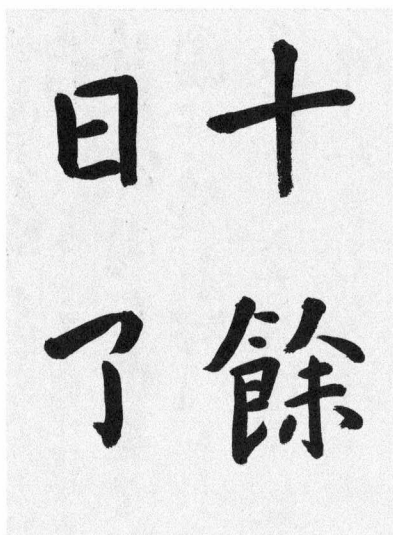 十餘
日了